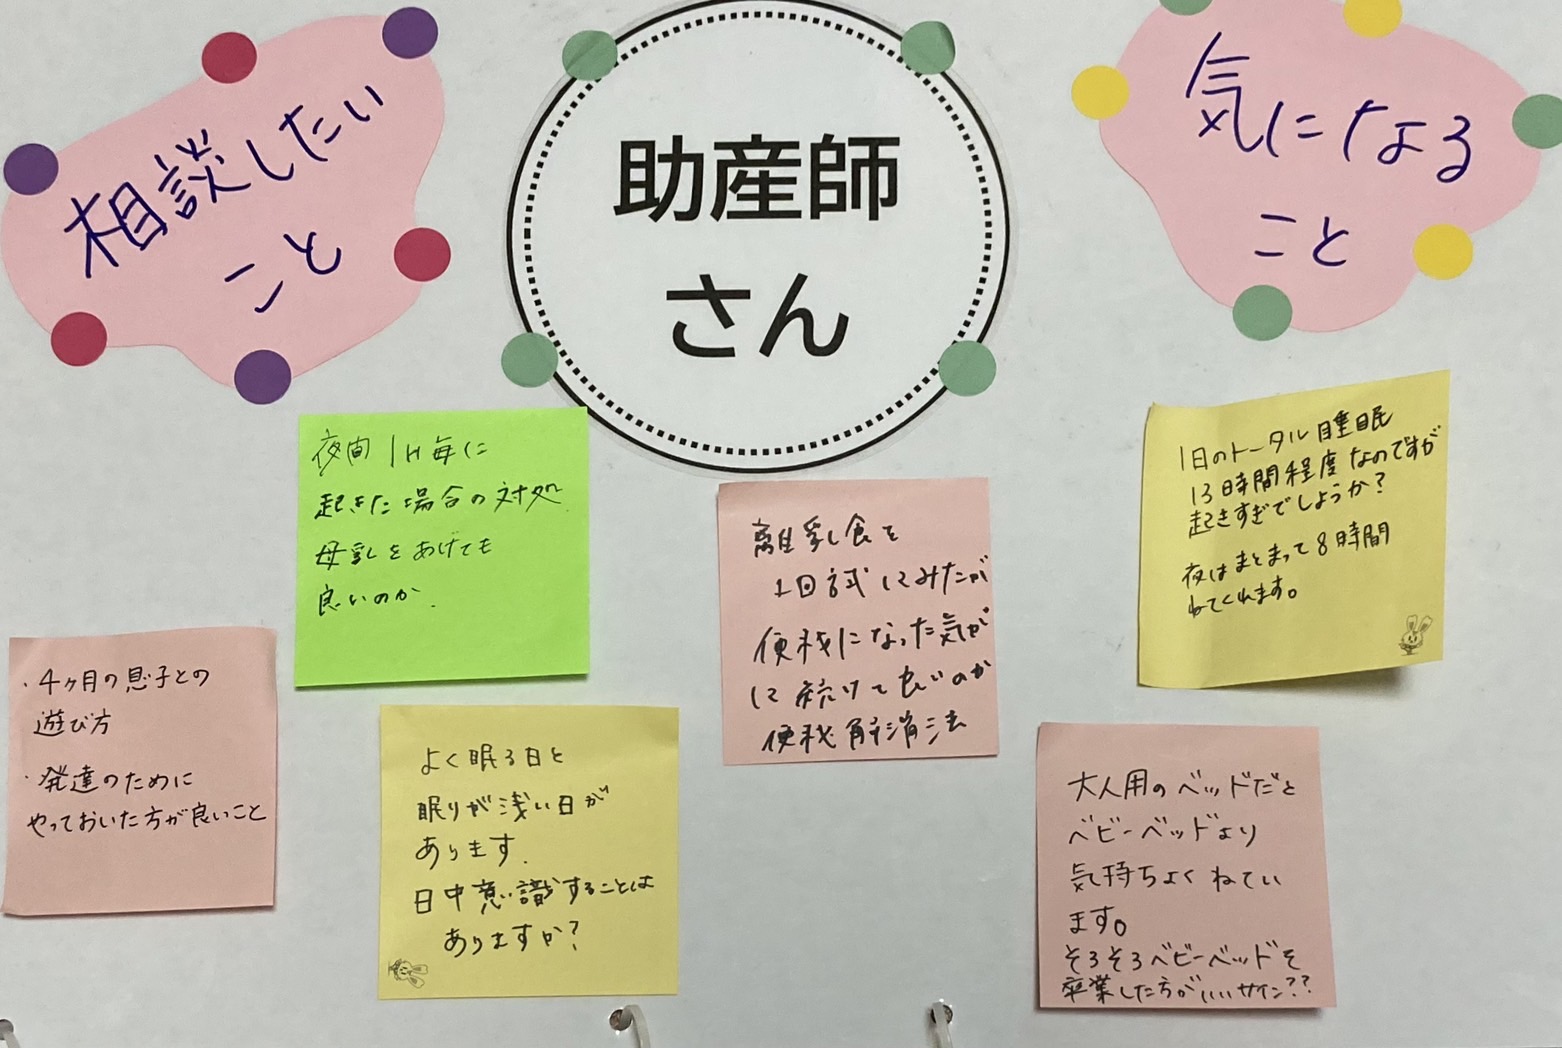 相談したい
こと
助産師
さん
気になる
こと
夜間1H毎に
起きた場合の対処
母乳をあげても
良いのか.
離乳食を
1回試してみたが
便秘になった気が
して続けて良いのか
便秘解消法
1日のトータル睡眠
13時間程度なのですが
起きすぎでしょうか?
夜はまとまって8時間
ねてくれます。
・4ヶ月の息子との
遊び方
・発達のために
やっておいた方が良いこと
よく眠る日と
眠りが浅い日が
あります.
日中意識することは
ありますか?
大人用のベッドだと
ベビーベッドより
気持ちよくねてい
ます。
そろそろベビーベッドを
卒業した方がいいサイン??